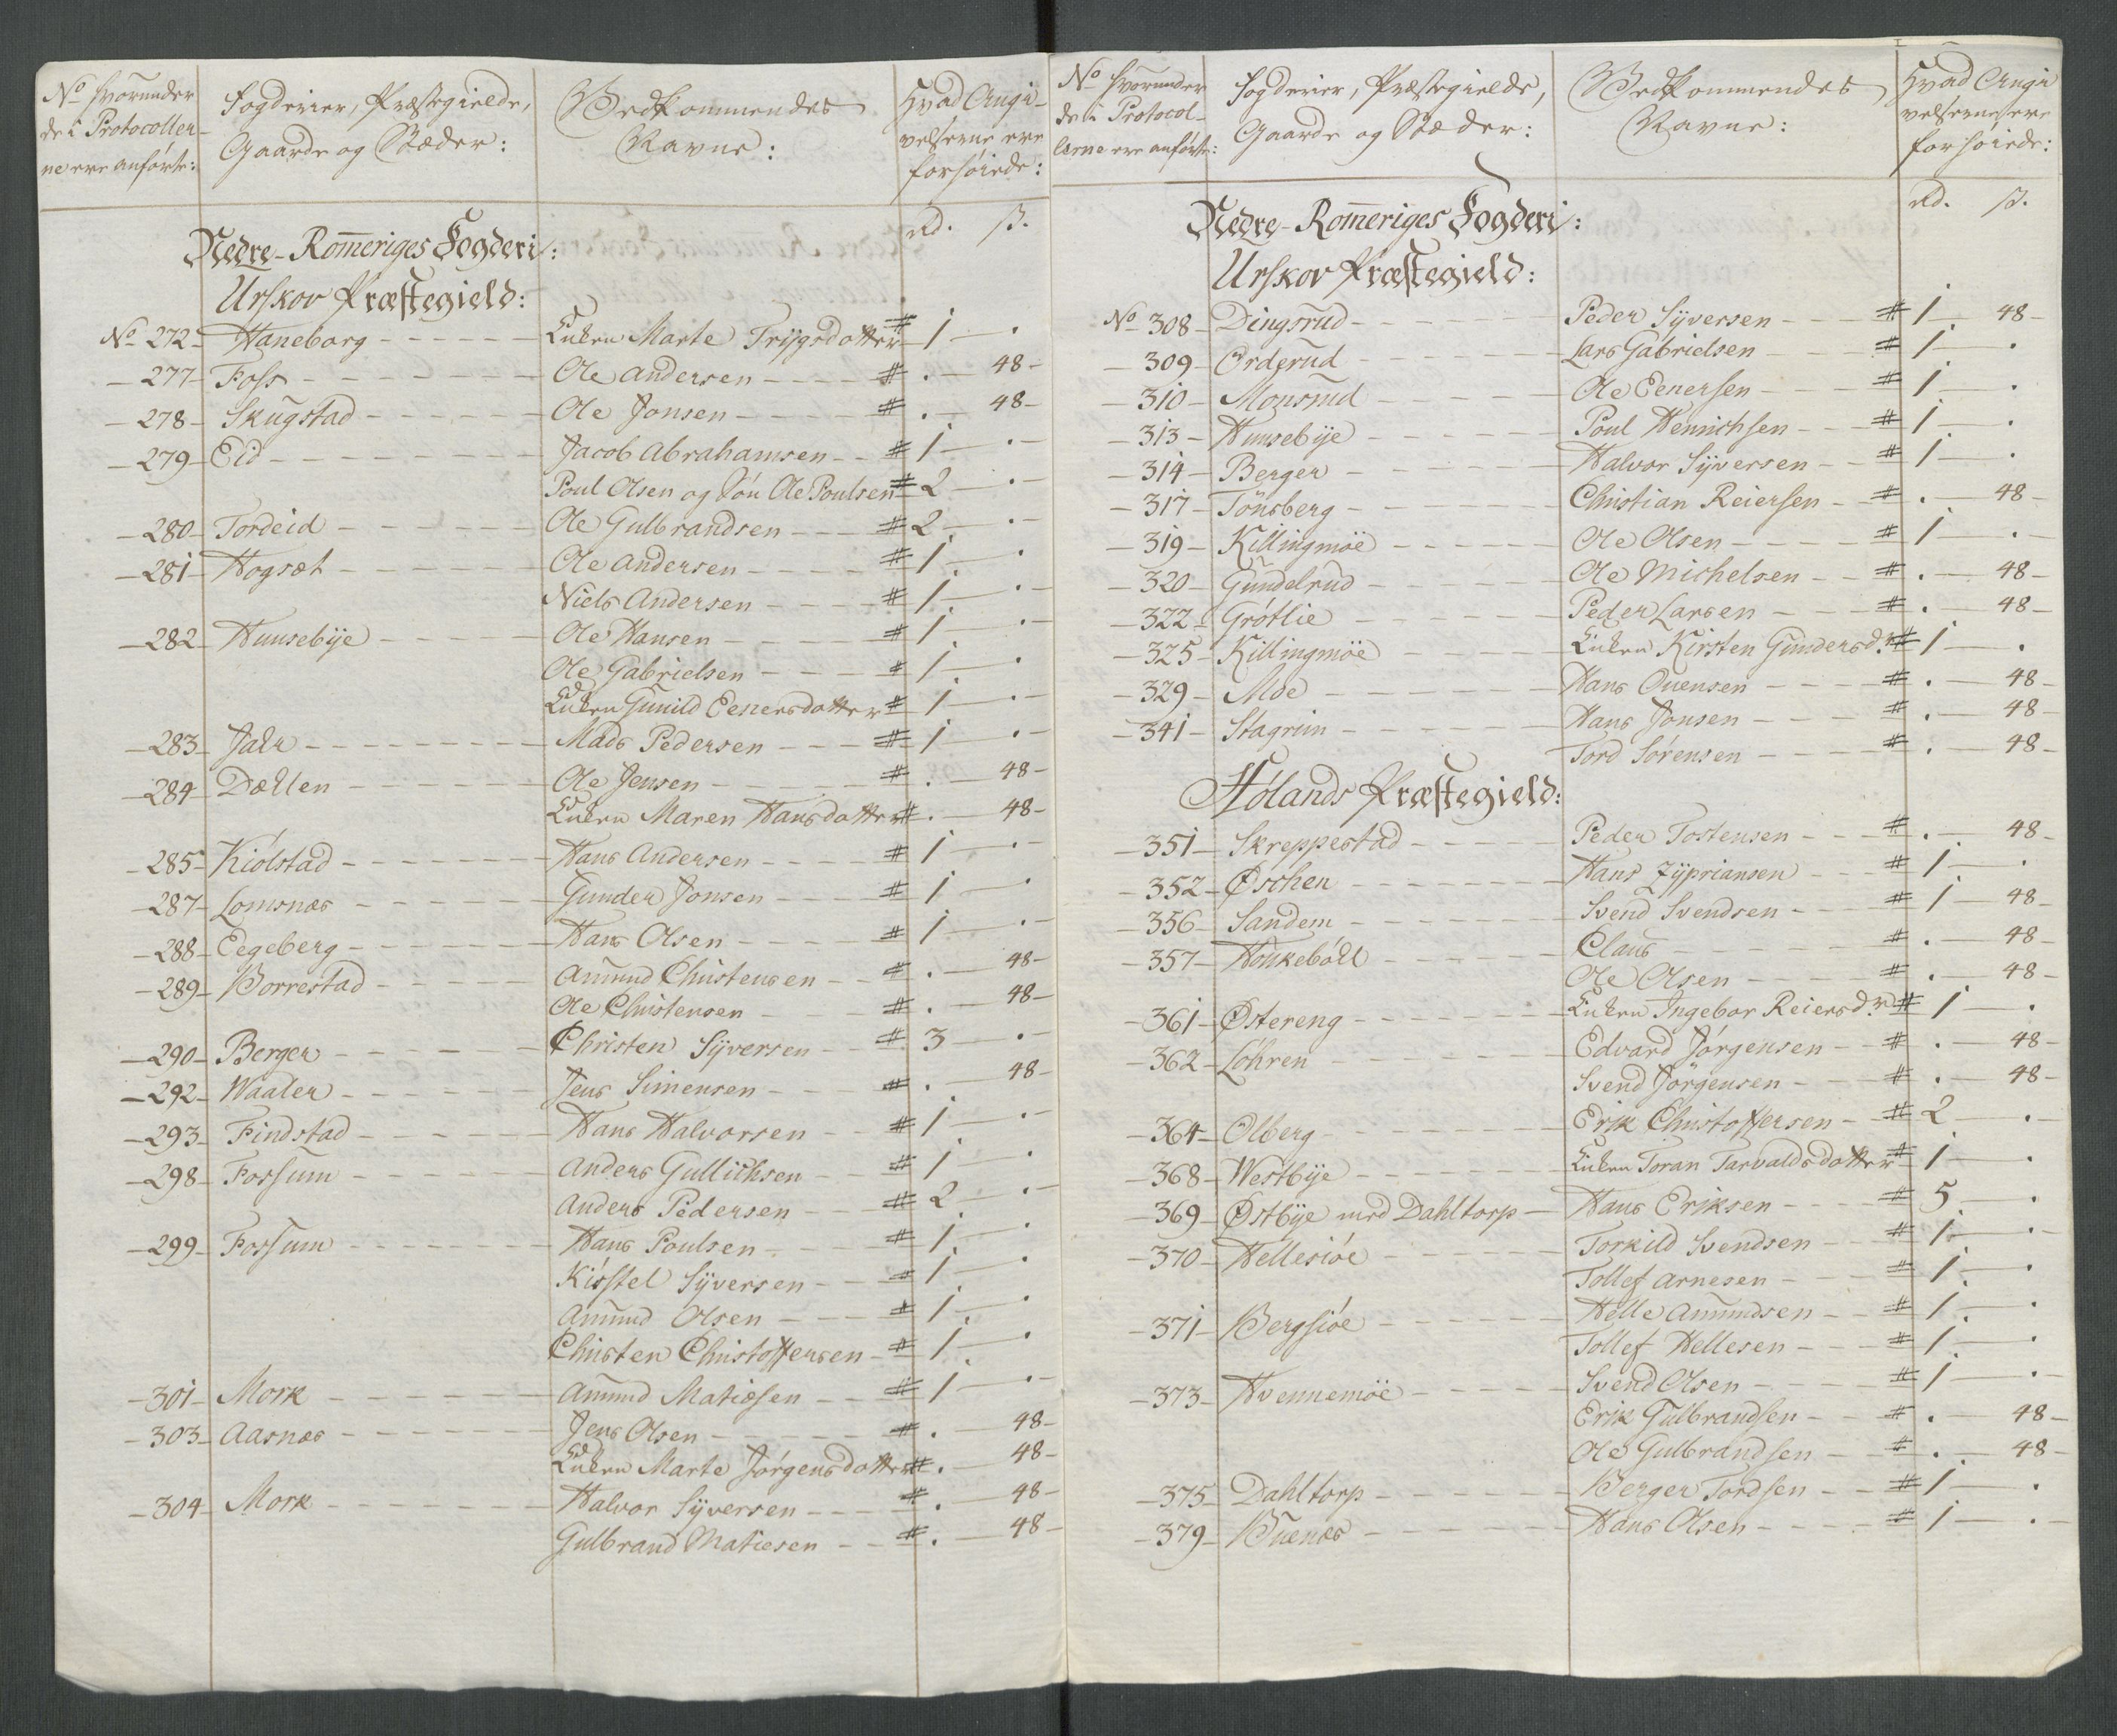 No hvorunder
de i Protocoller-
ne ere anførte:
Fogderier, Præstegielde,
Gaarde og Stæder:
Vedkommendes
Navne:
Hvad Angi-
velserne ere
forhøiede:
Rd. ß.
Nedre-Romeriges Fogderi:
Urskov Præstegield:
No 272- Haneborg - - - - - Enken Marte Trygsdotter # 1 - .
-277- Foss - - - - - Ole Andersen - - - - # . - 48-
-278- Skugstad - - - - - Ole Jonsen - - - - # . - 48-
-279- Eid - - - - - Jacob Abrahamsen - - # 1 - . -
Poul Olsen og Søn Ole Poulsen # 2 - . -
-280- Tordeid - - - - - Ole Gulbrandsen - - - # 2 - . -
-281- Hogsæt - - - - - Ole Andersen - - - - # 1 - .
Niels Andersen - - - - # 1 - . -
-282- Huusebÿe - - - - - Ole Hansen - - - - # 1 - . -
Ole Gabrielsen - - - - # 1 - .
Enken Gunild Eenersdotter # 1 - . -
-283- Jahr - - - - - Mads Pedersen - - - # 1 - . -
-284- Dællen - - - - - Ole Jensen - - - - # . - 48-
Enken Maren Hansdotter # . - 48-
-285- Kiölstad - - - - - Hans Andersen - - - - # 1 - . -
-287- Lomsnæs - - - - - Gunder Jonsen - - - - # 1 - .
-288- Eegeberg - - - - - Hans Olsen - - - - # 1 - . -
-289- Borrestad - - - - - Amund Christensen - - # . - 48-
Ole Christensen - - - # . - 48-
-290- Berger - - - - - Christen Sÿversen - - # 3 - . -
-292- Waaler - - - - - Jens Simensen - - # . - 48-
-293- Findstad - - - - - Hans Halvorsen - - # 1 - . -
-298- Fossum - - - - - Anders Gullichsen - # 1 - .
Anders Pedersen - - - # 2 - . -
-299- Fossum - - - - - Hans Poulsen - - - # 1 - .
Kisstel Sÿversen - - # 1 - .
Amund Olsen - - - - # 1 - .
Christen Christoffersen - # 1 - .
-301- Mork - - - - - Amund Matiesen - - # 1 - . -
-303- Aasnæs - - - - - Jens Olsen - - - - # . - 48-
Enken Marte Jörgensdotter # . - 48-
-304- Mork - - - - - Halvor Sÿversen - - - # . - 48-
Gulbrand Matiesen - - # . - 48-
No hvorunder
de i Protocol-
lerne ere anførte:
Fogderier, Præstegielde,
Gaarde og Stæder:
Vedkommendes
Navne:
Hvad Angi
velserne ere
forhøiede:
Rd. ß.
Nedre-Romeriges Fogderi:
Urskov Præstegield:
No 308- Dingsrud - - - - - Peder Sÿversen - - - # 1 - 48-
-309- Orderud - - - - - Lars Gabrielsen - - - # 1 - .
-310- Monsrud - - - - - Ole Eenersen - - - # 1 - .
-313- Huusebÿe - - - - - Poul Henrichsen - - # 1 - .
-314- Berger - - - - - Halvor Sÿversen - - # 1 - .
-317- Tönsberg - - - - - Christian Reiersen - # . - 48-
-319- Killingmöe - - - - - Ole Olsen - - - - # 1 - . -
-320- Gundelrud - - - - - Ole Michelsen - - # . - 48-
-322- Grötlie - - - - - Peder Larsen - - - # . - 48-
-325- Killingmöe - - - - - Enken Kirsten Gundersdr # 1 - .
-329- Moe - - - - - Hans Ouensen - - - # . - 48-
-341- Stagrim - - - - - Hans Jonsen - - - # . - 48-
Tord Sörensen - - - # . - 48-
Hölands Præstegield:
-351- Skreppestad - - - - - Peder Tostensen - - - # . - 48-
-352- Öschen - - - - - Hans Zÿpriansen - - # 1 - .
-356- Sandem - - - - - Svend Svendsen - - - # 1 - 48-
-357- Houkeböll - - - - - Claus - - - - # . - 48-
Ole Olsen - - - - # . - 48-
-361- Östereng - - - - - Enken Ingebor Reiersdr # 1 - .
-362- Löhren - - - - - Edvard Jörgensen - - # . - 48-
Svend Jörgensen - - - # . - 48-
-364- Olberg - - - - - Erik Christoffersen - # 2 - . -
-368- Westbÿe - - - - - Enken Toran Tarvaldsdotter # 1 - .
-369- Östbÿe med Dahltorp - Hans Eriksen - - - # 5 - .
-370- Hellesiöe - - - - - Torkild Svendsen - - # 1 - . -
Tollef Arnesen - - - # 1 - .
-371- Bergsiöe - - - - - Helle Amundsen - - # 1 - .
Tollef Hellesen - - - # 1 - .
-373- Hvennemöe - - - - - Svend Olsen - - - # 1 - .
Erik Gulbrandsen - - # . - 48-
Ole Gulbrandsen - - # . - 48-
-375- Dahltorp - - - - - Berger Tordsen - - # 1 - .
-379- Buenæs - - - - - Hans Olsen - - - - # 1 - . -